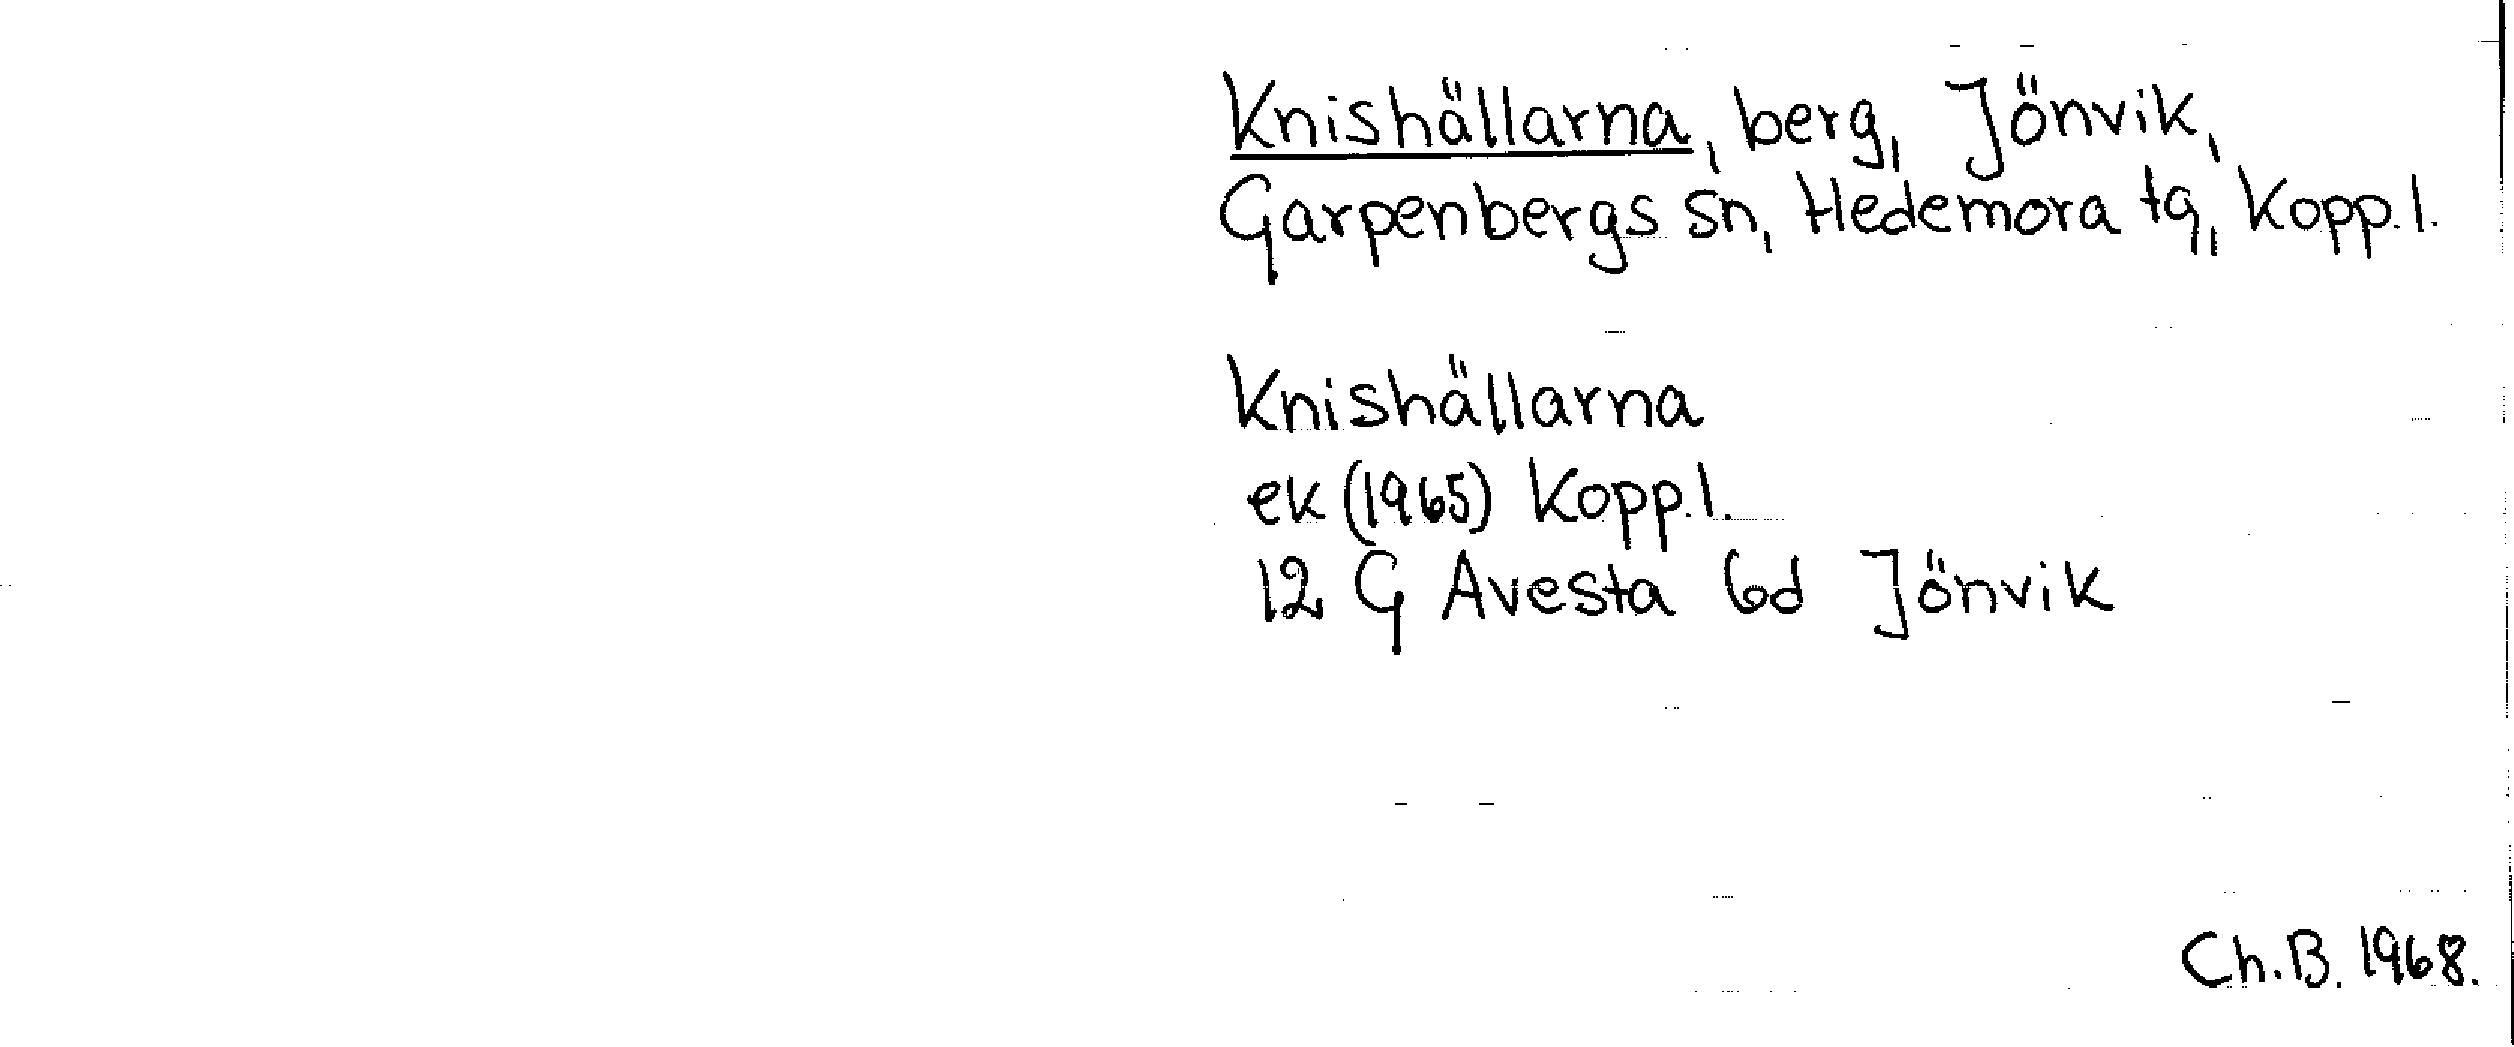 Knishällarna, berg, Jönvik,
Garpenbergs sn, Hedemora tg, Kopp.l.
Knishällarna
ek (1965) Kopp.l.
12 G Avesta 6d Jönvik
Ch.B. 1968.